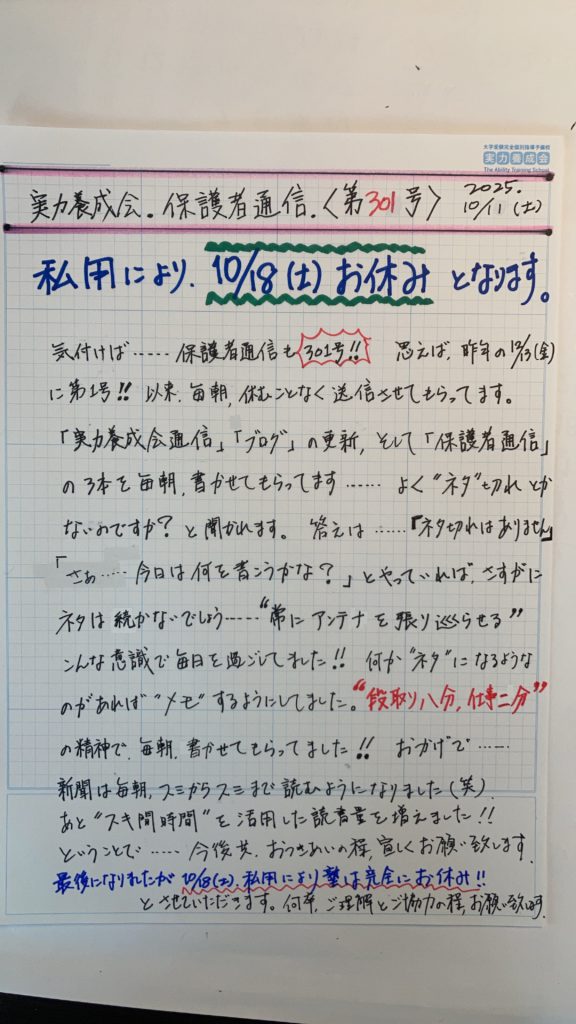 大学受験完全個別指導予備校
実力養成会
The Ability Training School
実力養成会.保護者通信.〈第301号〉 2025.10/11(土)
私用により、10/18(土)お休みとなります。
気付けば……保護者通信も301号!! 思えば、昨年の12/13(金)
に第1号!! 以来、毎朝、休むことなく送信させてもらってます。
「実力養成会通信」「ブログ」の更新、そして「保護者通信」
の3本を毎朝、書かせてもらってます…… よく“ネタ”切れとか
ないのですか?と聞かれます。答えは……「ネタ切れはありません」
「さぁ……今日は何を書こうかな?」とやっていれば、さすがに
ネタは続かないでしょう……“常にアンテナを張り巡らせる”
こんな意識で毎日を過ごしてました!! 何か“ネタ”になるような
のがあれば“メモ”するようにしてました。“段取り八分,仕事二分”
の精神で、毎朝、書かせてもらってました!! おかげで……
新聞は毎朝、スミからスミまで読むようになりました(笑)
あと“スキ間時間”を活用した読書量を増えました!!
ということで……今後共、おつきあいの程、宜しくお願い致します.
最後になりましたが10/18(土)、私用により塾は完全にお休み!!
とさせていただきます。何卒、ご理解とご協力の程、お願い致します.